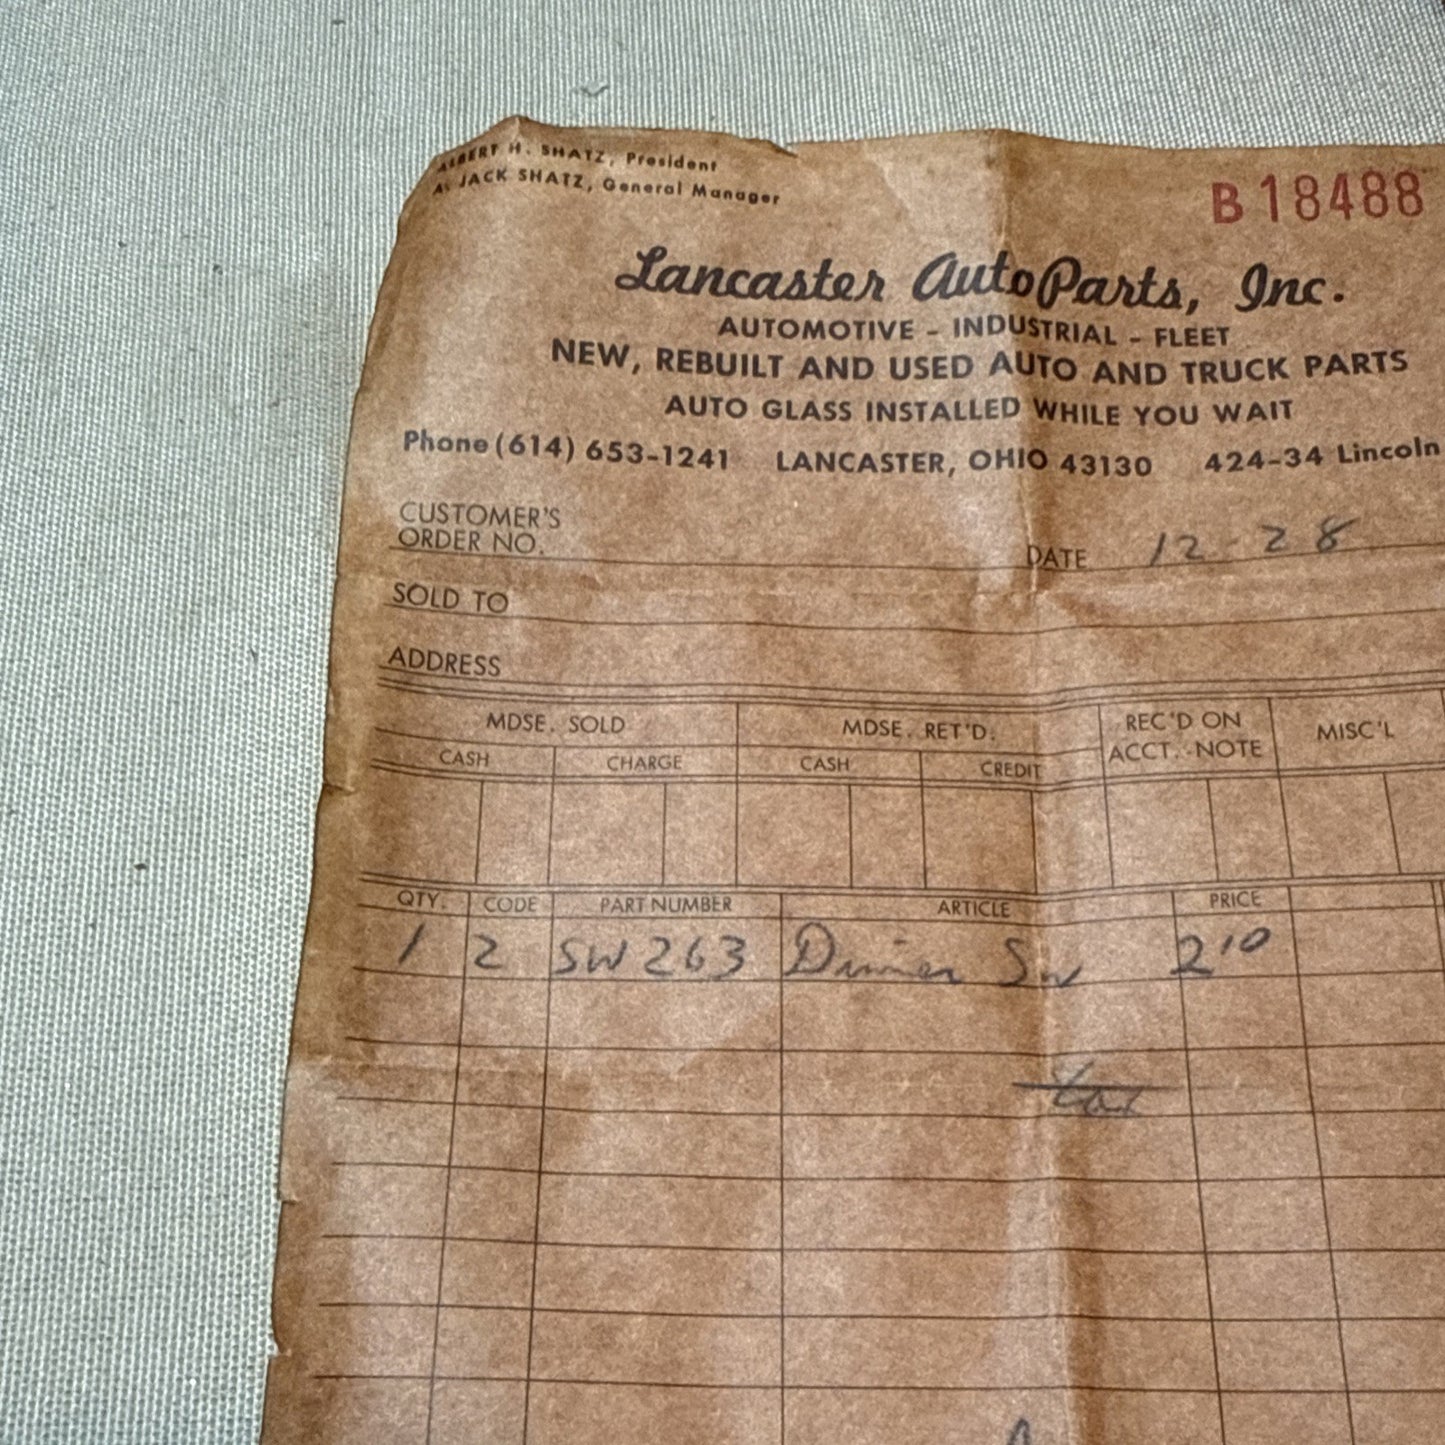 ALBERT H. SHATZ, President
A. JACK SHATZ, General Manager
B18488
Lancaster Auto Parts, Inc.
AUTOMOTIVE - INDUSTRIAL - FLEET
NEW, REBUILT AND USED AUTO AND TRUCK PARTS
AUTO GLASS INSTALLED WHILE YOU WAIT
Phone (614) 653-1241 LANCASTER, OHIO 43130 424-34 Lincoln
CUSTOMER'S
ORDER NO.
DATE 12-28
SOLD TO
ADDRESS
MDSE. SOLD MDSE. RET'D. REC'D ON ACCT.-NOTE MISC'L
CASH CHARGE CASH CREDIT
QTY. CODE PART NUMBER ARTICLE PRICE
1 2 SW263 Dimmer Sw 2 10
tax